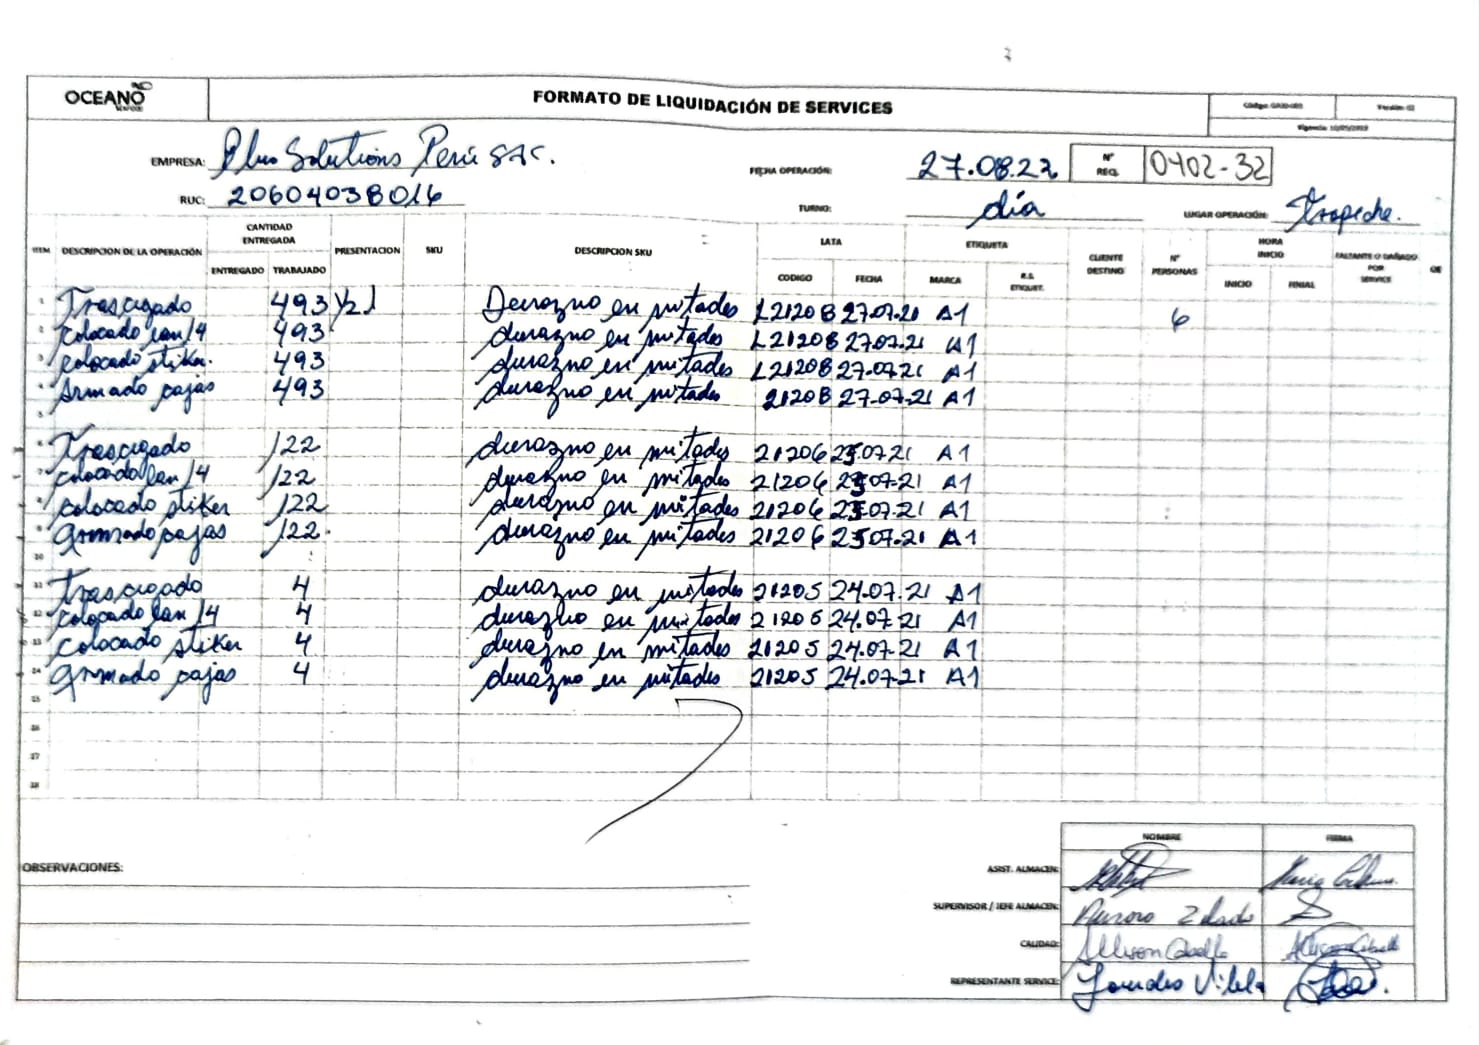 OCEANO
SEAFOOD
FORMATO DE LIQUIDACIÓN DE SERVICES
Versión: 02
Vigencia: 10/05/2019
EMPRESA: Plus Solutions Perú SAC.
FECHA OPERACIÓN: 27.08.22
N° REQ. 0402-32
RUC: 20604038016
TURNO: día
LUGAR OPERACIÓN: Trapiche.
ITEM DESCRIPCION DE LA OPERACIÓN CANTIDAD ENTREGADA PRESENTACION SKU DESCRIPCION SKU LATA ETIQUETA CLIENTE DESTINO N° PERSONAS HORA INICIO FALTANTE O DAÑADO POR SERVICE
ENTREGADO TRABAJADO CODIGO FECHA MARCA R.S. ETIQUET. INICIO FINIAL
1 Trasciegado 493 1/2 Durazno en mitades L21208 27.07.21 A1 6
2 colocado lan/4 493 durazno en mitades L21208 27.07.21 A1
3 colocado stiker. 493 durazno en mitades L21208 27.07.21 A1
4 Armado cajas 493 durazno en mitades 21208 27.07.21 A1
5
6 Trasciegado 122 durazno en mitades 21206 25.07.21 A1
7 colocado lan/4 122 durazno en mitades 21206 25.07.21 A1
8 colocado stiker 122 durazno en mitades 21206 25.07.21 A1
9 armado cajas 122. durazno en mitades 21206 25.07.21 A1
10
11 Trasciegado 4 durazno en mitades 21205 24.07.21 A1
12 colocado lan/4 4 durazno en mitades 21205 24.07.21 A1
13 colocado stiker 4 durazno en mitades 21205 24.07.21 A1
14 armado cajas 4 durazno en mitades 21205 24.07.21 A1
15
16
17
18
NOMBRE FIRMA
OBSERVACIONES:
ASIST. ALMACEN:
SUPERVISOR / JEFE ALMACEN: Aurora
CALIDAD: Allison
REPRESENTANTE SERVICE: Lourdes Vilela